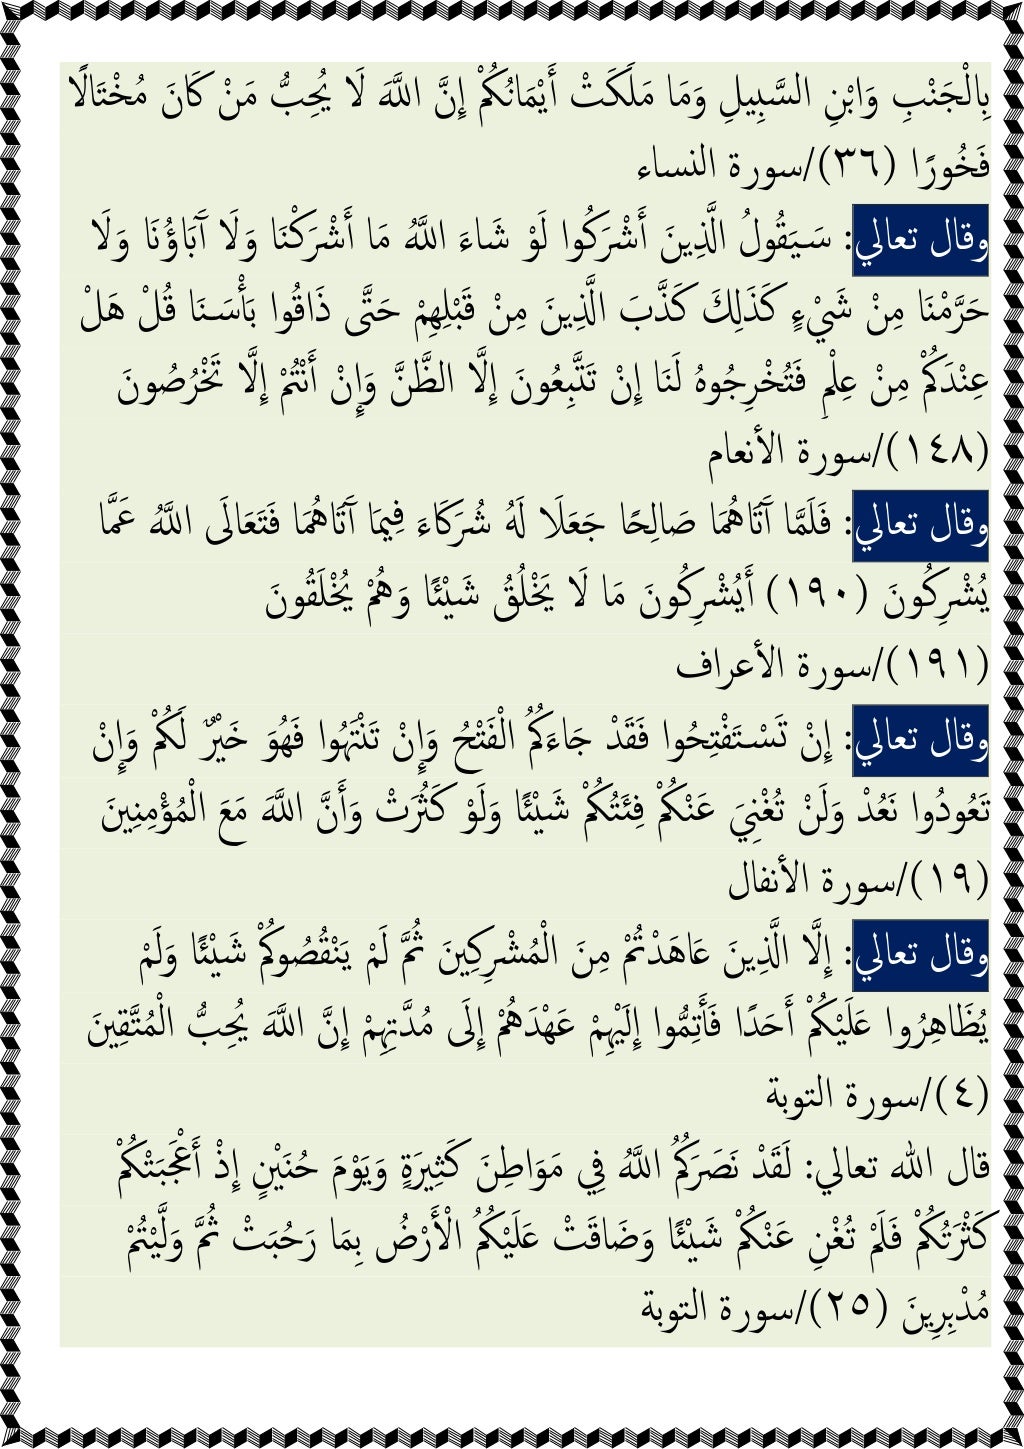 بِالْجَنْبِ وَابْنِ السَّبِيلِ وَمَا مَلَكَتْ أَيْمَانُكُمْ إِنَّ اللَّهَ لَا يُحِبُّ مَنْ كَانَ مُخْتَالًا
فَخُورًا (٣٦)/سورة النساء
وقال تعالي: سَيَقُولُ الَّذِينَ أَشْرَكُوا لَوْ شَاءَ اللَّهُ مَا أَشْرَكْنَا وَلَا آَبَاؤُنَا وَلَا
حَرَّمْنَا مِنْ شَيْءٍ كَذَلِكَ كَذَّبَ الَّذِينَ مِنْ قَبْلِهِمْ حَتَّى ذَاقُوا بَأْسَنَا قُلْ هَلْ
عِنْدَكُمْ مِنْ عِلْمٍ فَتُخْرِجُوهُ لَنَا إِنْ تَتَّبِعُونَ إِلَّا الظَّنَّ وَإِنْ أَنْتُمْ إِلَّا تَخْرُصُونَ
(١٤٨)/سورة الأنعام
وقال تعالي: فَلَمَّا آَتَاهُمَا صَالِحًا جَعَلَا لَهُ شُرَكَاءَ فِيمَا آَتَاهُمَا فَتَعَالَى اللَّهُ عَمَّا
يُشْرِكُونَ (١٩٠) أَيُشْرِكُونَ مَا لَا يَخْلُقُ شَيْئًا وَهُمْ يُخْلَقُونَ
(١٩١)/سورة الأعراف
وقال تعالي: إِنْ تَسْتَفْتِحُوا فَقَدْ جَاءَكُمُ الْفَتْحُ وَإِنْ تَنْتَهُوا فَهُوَ خَيْرٌ لَكُمْ وَإِنْ
تَعُودُوا نَعُدْ وَلَنْ تُغْنِيَ عَنْكُمْ فِئَتُكُمْ شَيْئًا وَلَوْ كَثُرَتْ وَأَنَّ اللَّهَ مَعَ الْمُؤْمِنِينَ
(١٩)/سورة الأنفال
وقال تعالي: إِلَّا الَّذِينَ عَاهَدْتُمْ مِنَ الْمُشْرِكِينَ ثُمَّ لَمْ يَنْقُصُوكُمْ شَيْئًا وَلَمْ
يُظَاهِرُوا عَلَيْكُمْ أَحَدًا فَأَتِمُّوا إِلَيْهِمْ عَهْدَهُمْ إِلَى مُدَّتِهِمْ إِنَّ اللَّهَ يُحِبُّ الْمُتَّقِينَ
(٤)/سورة التوبة
قال الله تعالي: لَقَدْ نَصَرَكُمُ اللَّهُ فِي مَوَاطِنَ كَثِيرَةٍ وَيَوْمَ حُنَيْنٍ إِذْ أَعْجَبَتْكُمْ
كَثْرَتُكُمْ فَلَمْ تُغْنِ عَنْكُمْ شَيْئًا وَضَاقَتْ عَلَيْكُمُ الْأَرْضُ بِمَا رَحُبَتْ ثُمَّ وَلَّيْتُمْ
مُدْبِرِينَ (٢٥)/سورة التوبة